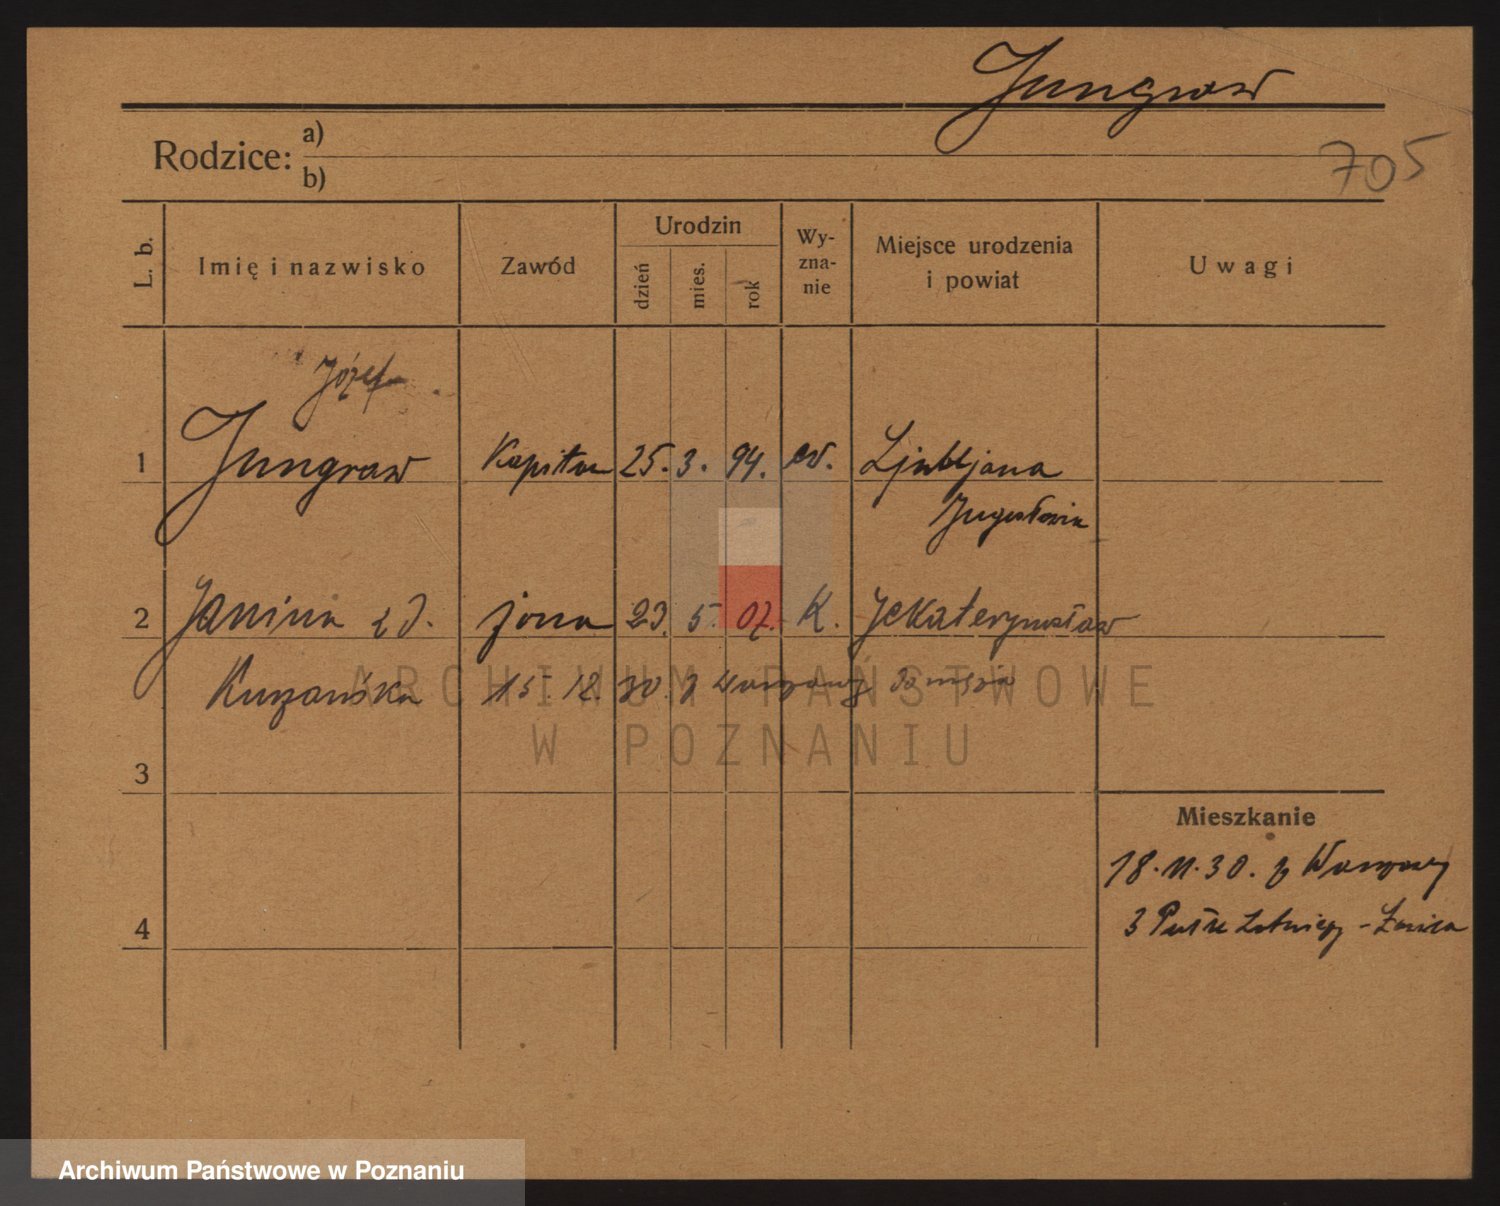 Jungraw
705
Rodzice: a)
b)
L. b.
Imię i nazwisko
Zawód
Urodzin
dzień
mies.
rok
Wy-
zna-
nie
Miejsce urodzenia
i powiat
Uwagi
Józef
1 Jungraw Kapitan 25. 3. 94. ew. Ljubljana
Jugosławia
2 Janina z d. żona 23. 5. 07. K. Jekaterynosław
Kurzańska 15. 12. 30. z Warszawy
3
Mieszkanie
18. 11. 30. z Warszawy
3 Pułk Lotniczy - Ławica
4
ARCHIWUM PAŃSTWOWE
W POZNANIU
Archiwum Państwowe w Poznaniu